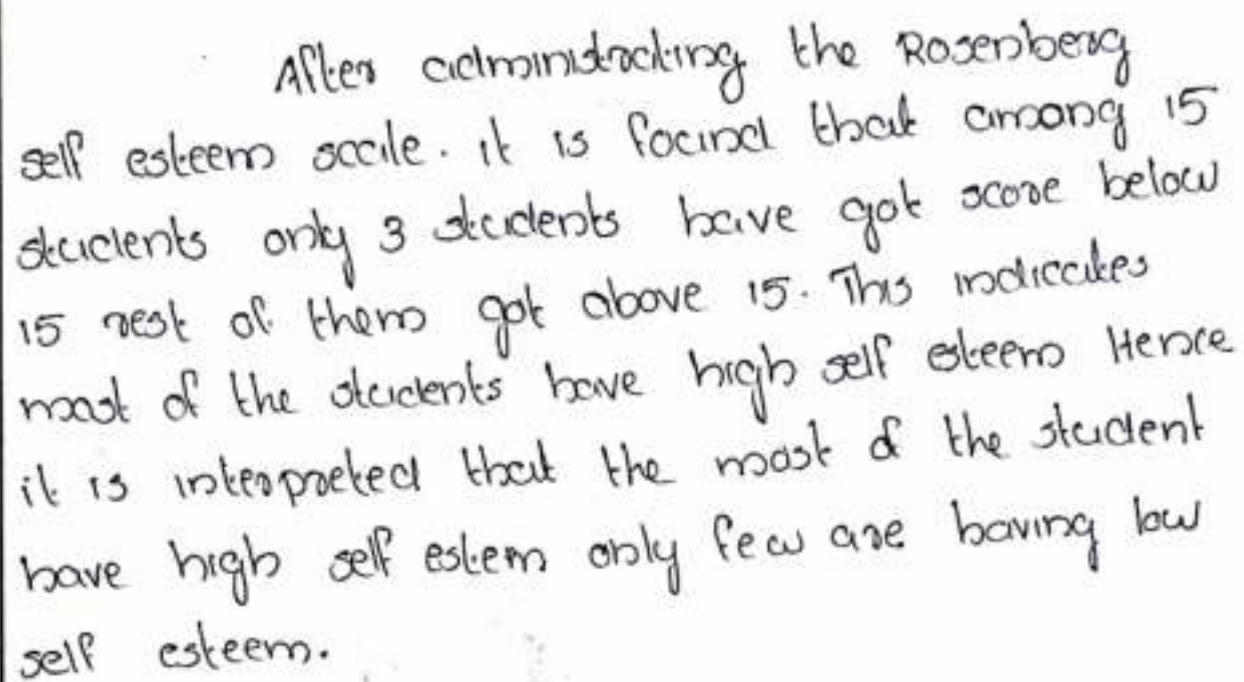 After administrating the Rosenberg
self esteem scale. it is found that among 15
students only 3 students have got score below
15 rest of them got above 15. This indicates
most of the students have high self esteem Hence
it is interpreted that the most of the student
have high self estem only few are having low
self esteem.